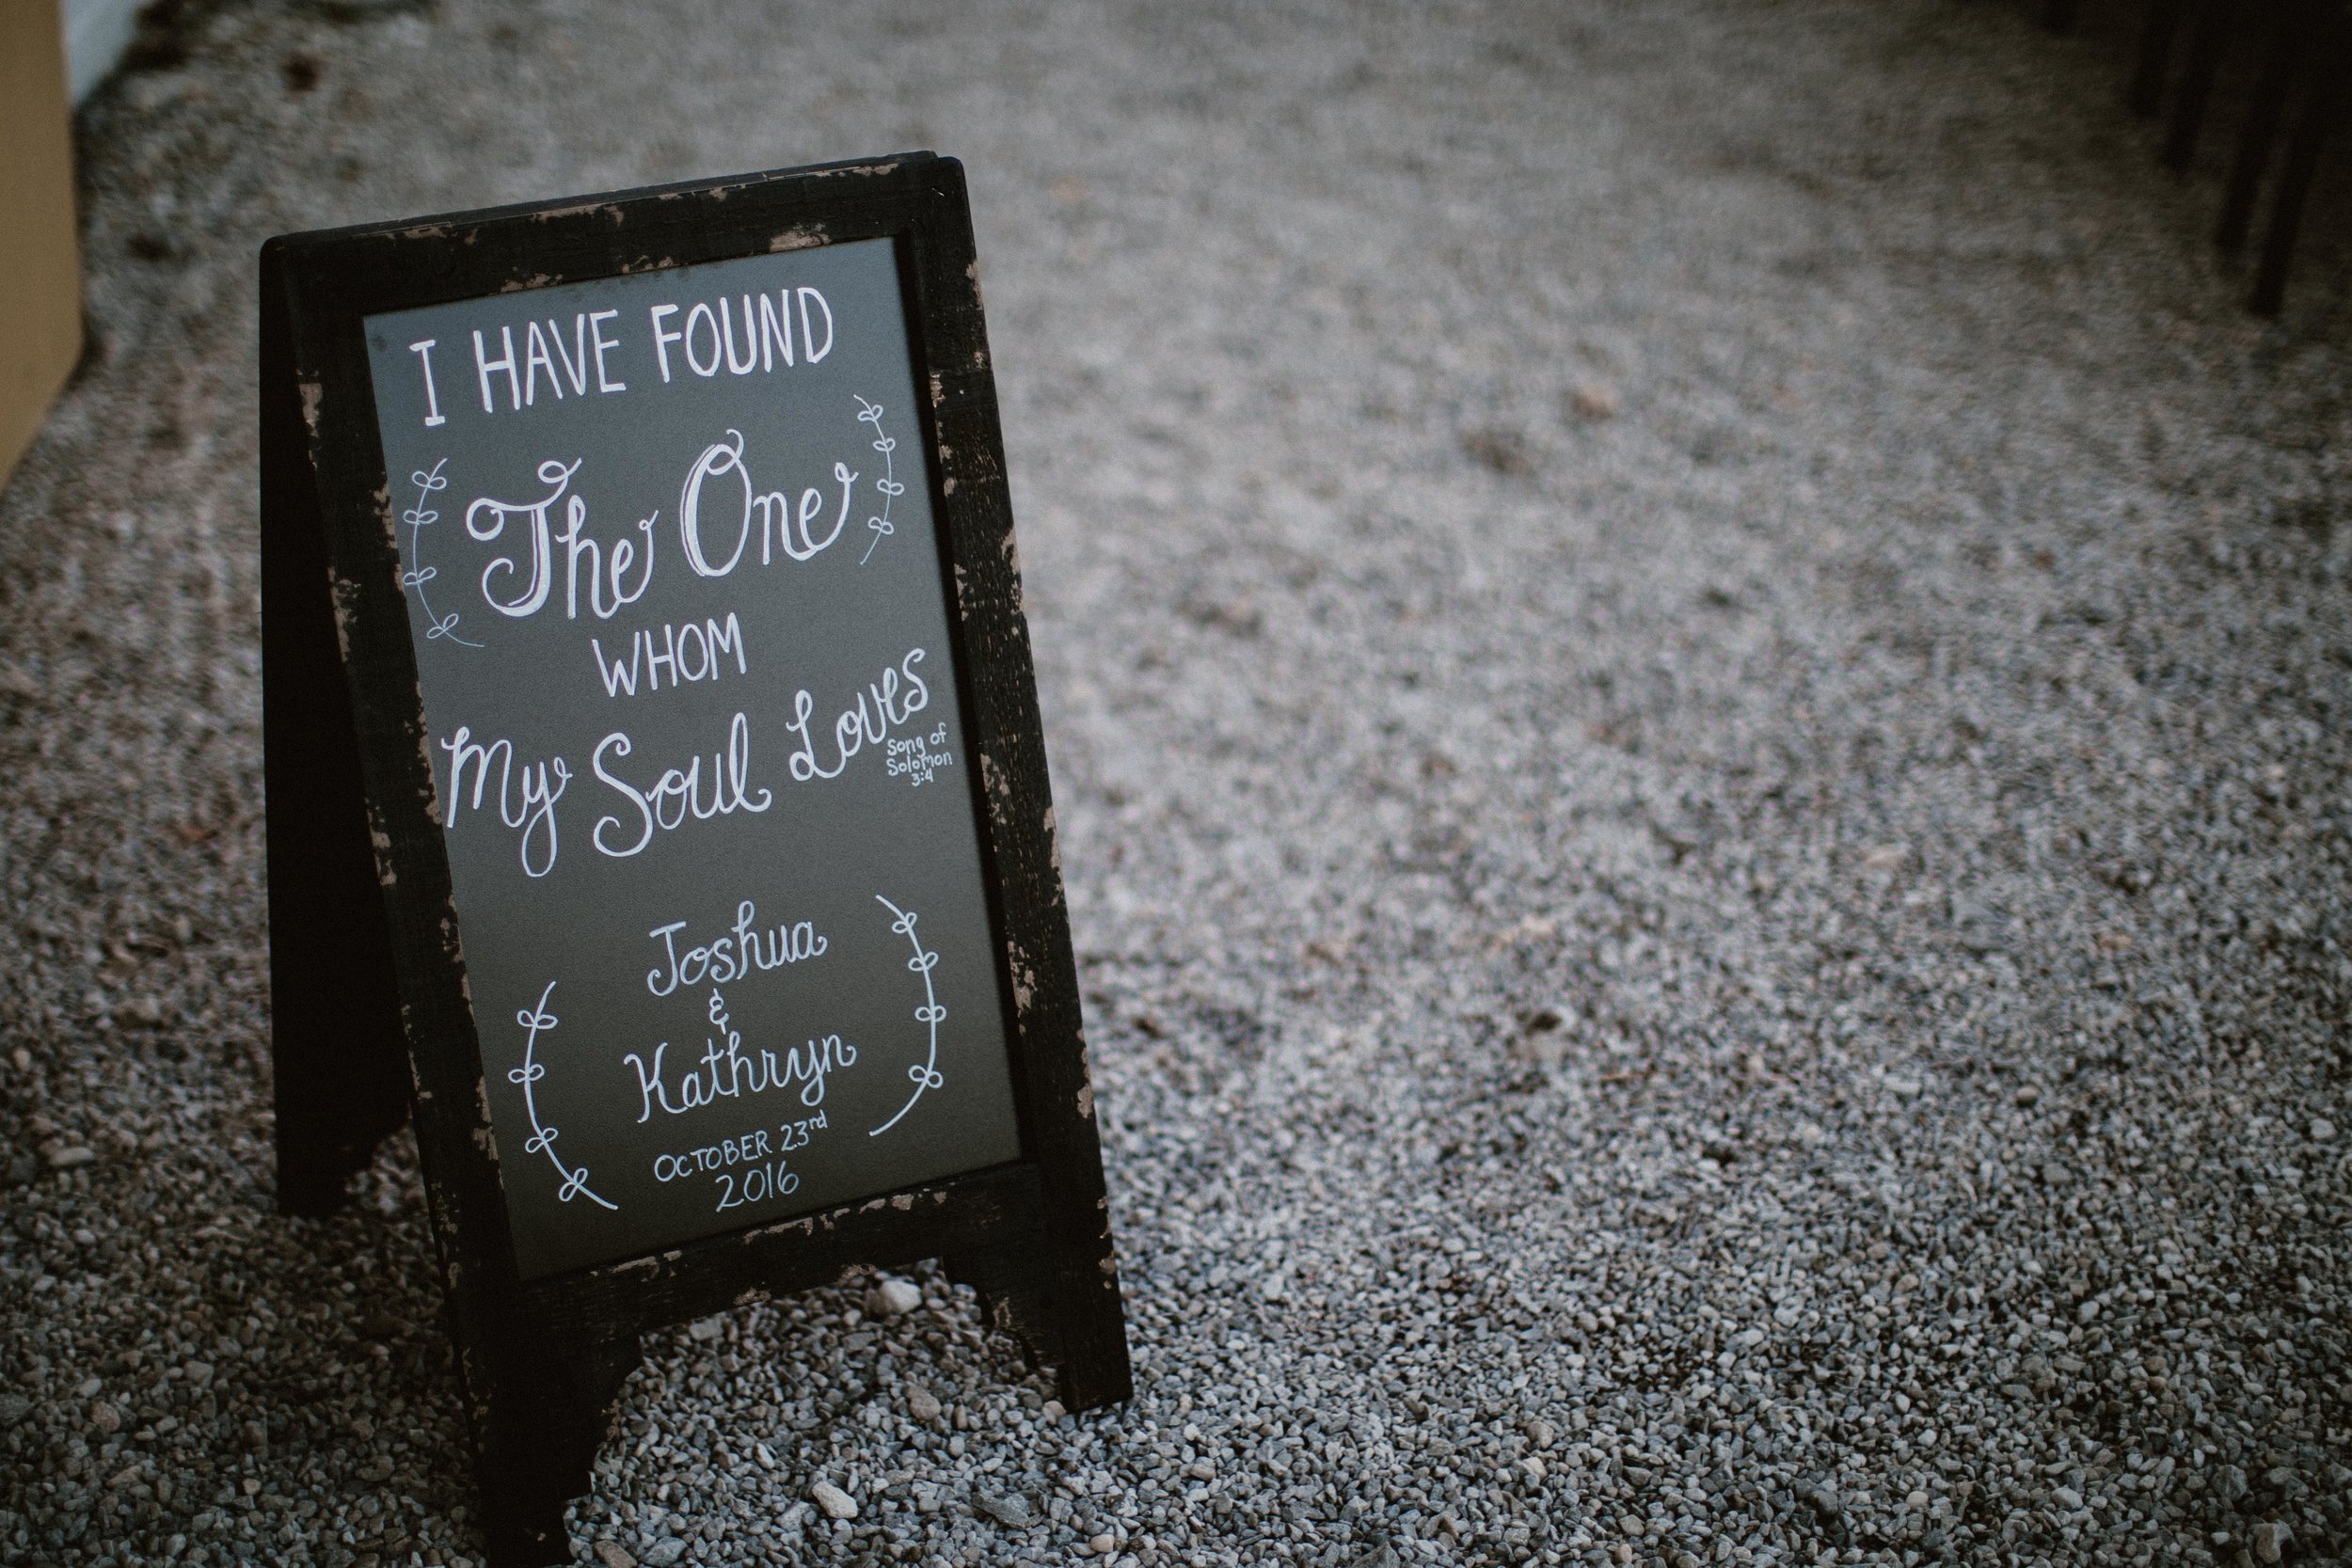 I HAVE FOUND
The One
WHOM
My Soul Loves
Song of
Solomon
3:4
Joshua
&
Kathryn
OCTOBER 23rd
2016